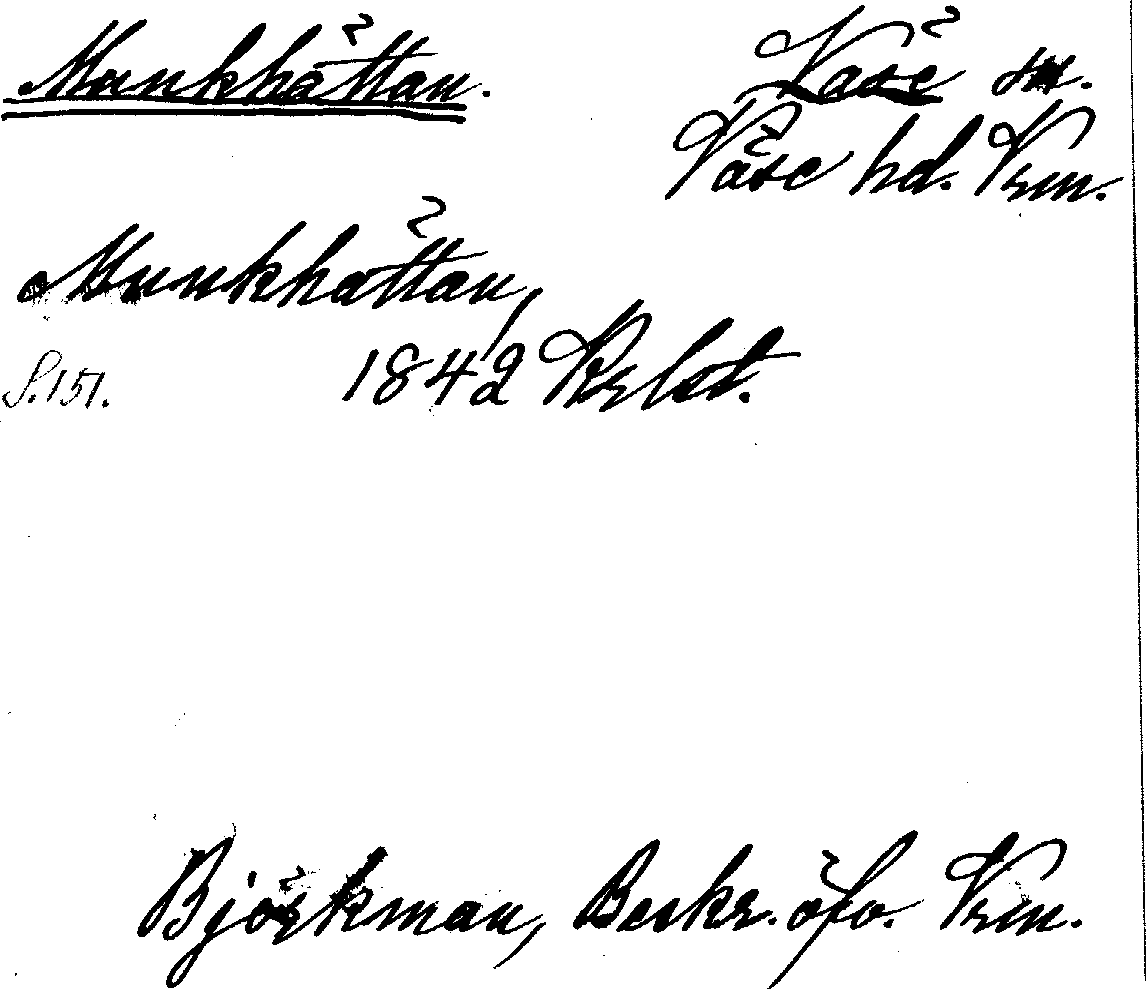 Munkhättan.
Väse sn.
Väse hd. Vrm.
Munkhättan,
S. 151.
1842 Krlst.
Björkman, Beskr. öfv. Vrm.